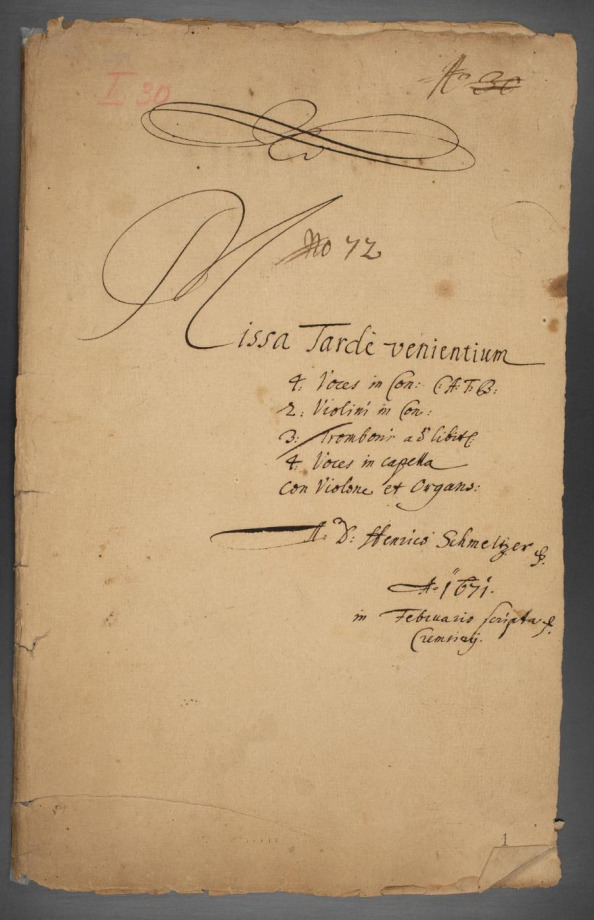 I 30
No 30
No 72
Missa Tardè venientium
4: Voces in Con: C:A:T:B:
2: Violini in Con:
3: Tromboni ad libit:
4: Voces in capella
Con Violone et Organo:
A: D: Henrico Schmeltzer
A: 1671.
in Februario scripta
Cremsirij.
1